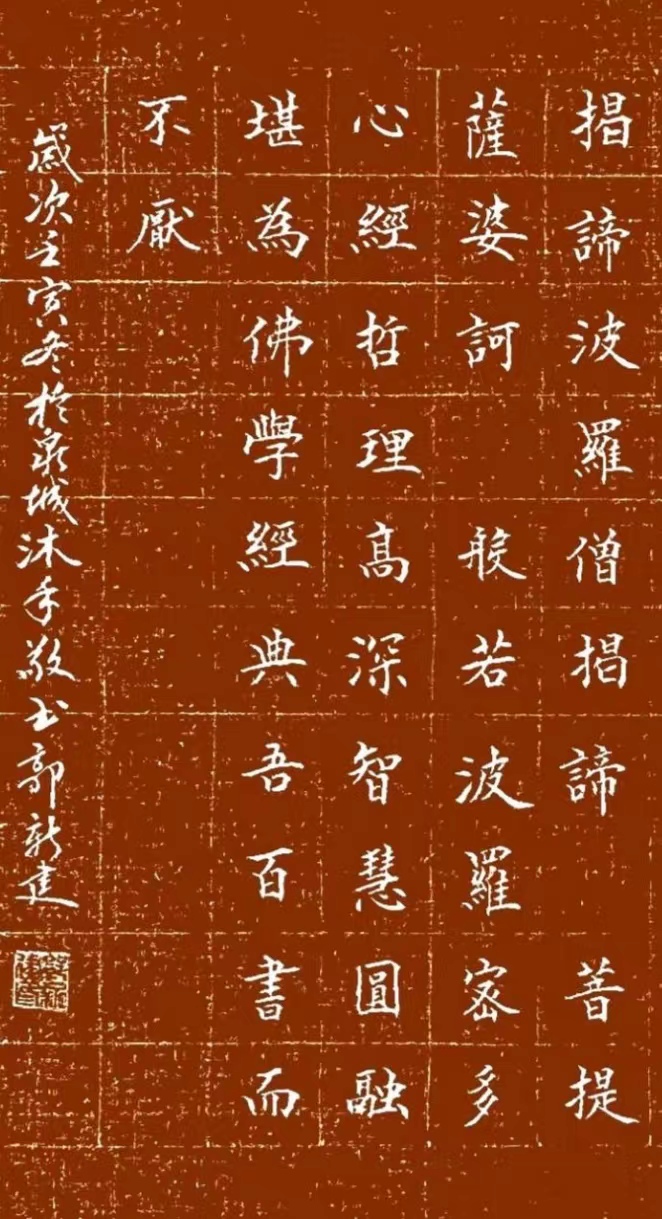 揭諦波羅僧揭諦 菩提
薩婆訶 般若波羅密多
心經哲理高深智慧圓融
堪為佛學經典吾百書而
不厭
歲次壬寅冬於泉城沐手敬书郭新建